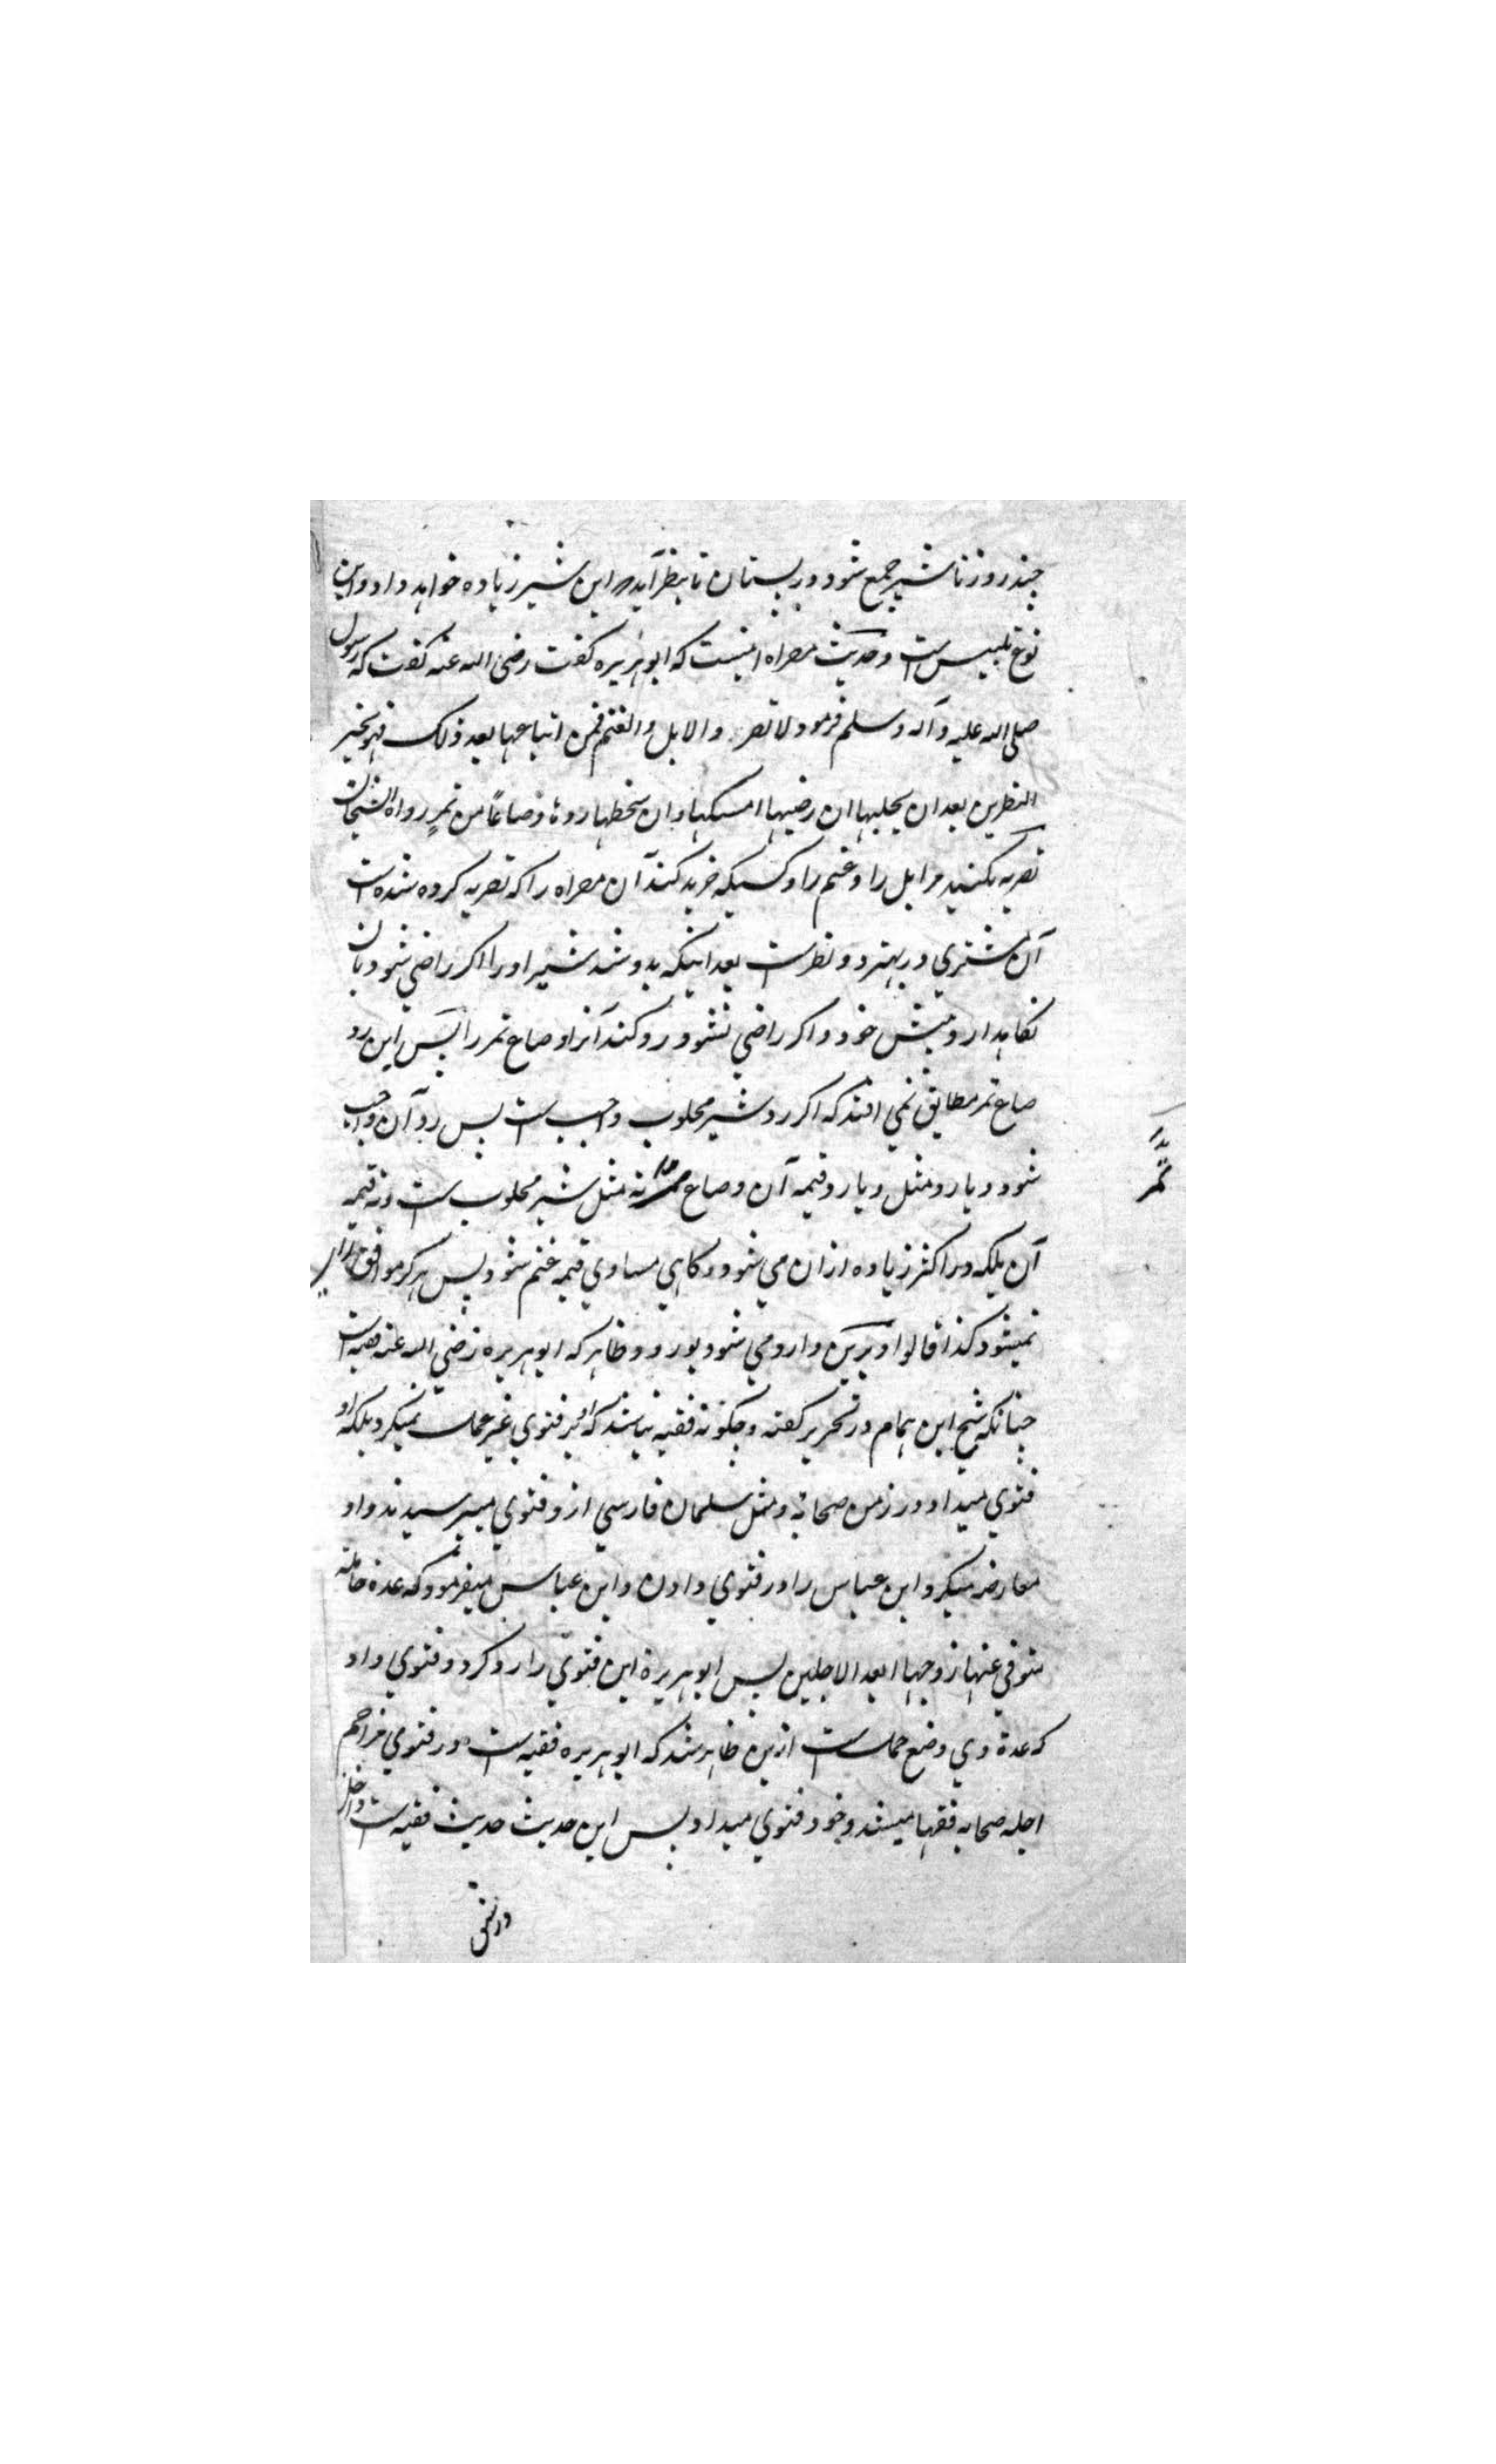 چند روز تا شیر جمع شود در پستان تا بنظر آید که این شیر زیاده خواهد داد و این
نوع تلبیس است و حدیث مصراه اینست که ابو هریره گفت رضی الله عنه گفت که رسول
صلی الله علیه و آله و سلم فرمود لا تصروا الابل و الغنم فمن ابتاعها بعد ذلک فهو بخیر
النظرین بعد ان یحلبها ان رضیها امسکها و ان سخطها ردها و صاعًا من تمرٍ رواه الشیخان
تصریه نکنید مر ابل را و غنم را و کسیکه خرید کند آن مصراه را که تصریه کرده شده است
آن مشتری در بهتر دو نظر است بعد اینکه بدوشد شیر او را اگر راضی شود بآن
نگاهدارد پیش خود و اگر راضی نشود رد کند آنرا و صاع تمر را پس این رد
صاع تمر مطابق نمی افتد که اگر رد شیر محلوب واجب است پس رد آن واجب
شود و یا رد مثل و یا رد قیمه آن و صاع تمر نه مثل شیر محلوب است و نه قیمه
آن بلکه در اکثر زیاده ازان می شود و گاهی مساوی قیمه غنم شود پس هرگز موافق
نمیشود کذا قالوا و برین وارد می شود بورود ظاهر که ابو هریره رضی الله عنه فقیه است
چنانکه شیخ ابن همام در تحریر گفته و چگونه فقیه نباشد که او بر فتوی غیر عمل نمیکرد بلکه او
فتوی میداد در زمن صحابه و مثل سلمان فارسی ازو فتوی میپرسیدند و او
معارضه میکرد ابن عباس را در فتوی دادن و ابن عباس میفرمود که عدة حامله
متوفی عنها زوجها ابعد الاجلین پس ابو هریرة این فتوی را رد کرد و فتوی داد
که عدة وی وضع حمل است ازین ظاهر شد که ابو هریره فقیه است و در فتوی مزاحم
اجله صحابه فقها میشد و خود فتوی میداد پس این حدیث حدیث فقیه است و داخل
تمر